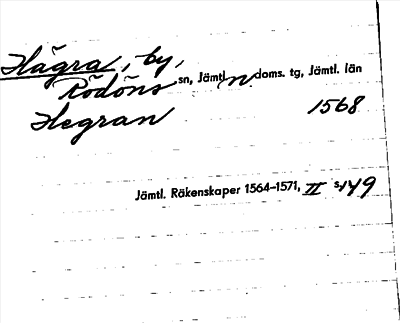 Hägra, by,
Rödöns sn, Jämtl. n doms. tg, Jämtl. län
Hegran 1568
Jämtl. Räkenskaper 1564–1571, II s. 149